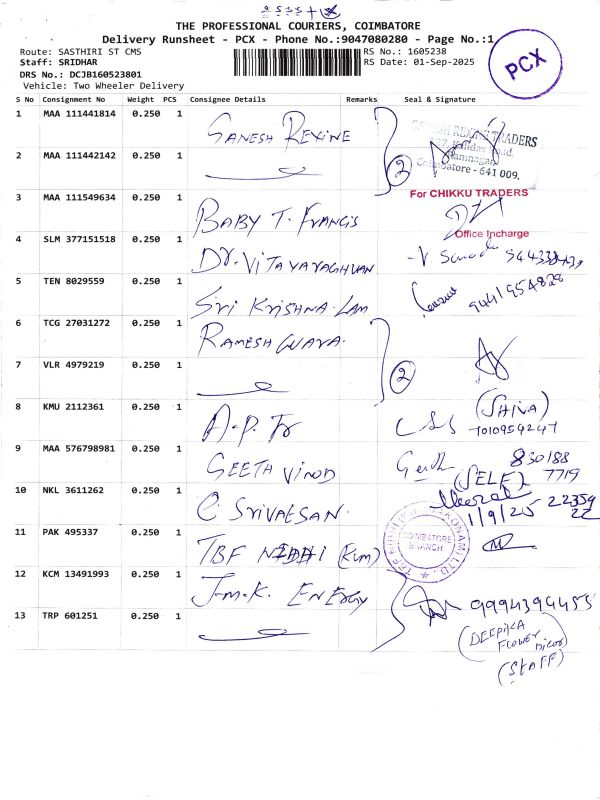 THE PROFESSIONAL COURIERS, COIMBATORE
Delivery Runsheet - PCX - Phone No.:9047080280 - Page No.:1
Route: SASTHIRI ST CMS
RS No.: 1605238
Staff: SRIDHAR
RS Date: 01-Sep-2025
DRS No.: DCJB160523801
Vehicle: Two Wheeler Delivery
PCX
S No Consignment No Weight PCS Consignee Details Remarks Seal & Signature
1 MAA 111441814 0.250 1 GANESH REXINE
GANESH REXINE TRADERS
Kalidas Road,
Ramnagar,
Coimbatore - 641 009.
2 MAA 111442142 0.250 1 2
For CHIKKU TRADERS
3 MAA 111549634 0.250 1 BABY T. FRANCIS
Office Incharge
4 SLM 377151518 0.250 1 DR. VIJAYARAGHVAN
5 TEN 8029559 0.250 1 SRI KRISHNA. LAM 9441954828
6 TCG 27031272 0.250 1 RAMESH
7 VLR 4979219 0.250 1 2
8 KMU 2112361 0.250 1 A.P. (SHIVA)
7010959247
9 MAA 576798981 0.250 1 GEETH VINOD 830188
7719
(SELF)
10 NKL 3611262 0.250 1 C. SRIVATSAN. 22359
1/9/25 22
11 PAK 495337 0.250 1 TBF NIDHI (Kum)
COIMBATORE
BRANCH
12 KCM 13491993 0.250 1 J.M.K. ENERGY 9994394455
13 TRP 601251 0.250 1
(DEEPIKA
FLOWER
(STAFF)